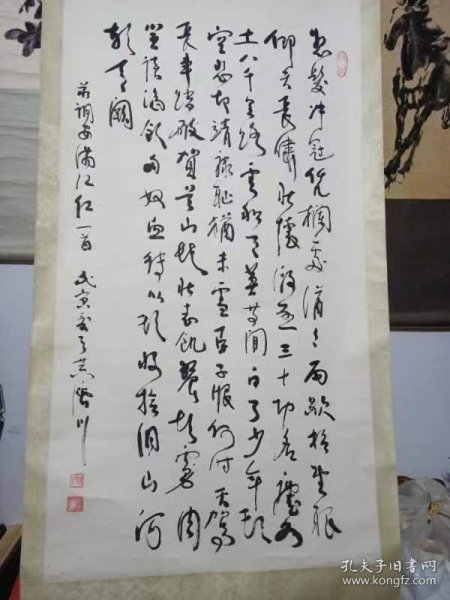 怒髮冲冠凭栏處潇々雨歇抬望眼
仰天長啸壮懷激烈三十功名塵与
土八千里路雲和月莫等閒白了少年頭
空悲切靖康耻猶未雪臣子恨何时灭驾
長車踏破贺兰山缺壮志飢餐胡虏肉
笑談渴飲匈奴血待从头收拾旧山河
朝天阙
调寄满江红一首 戊寅
孔夫子旧书网
www.kongfz.com